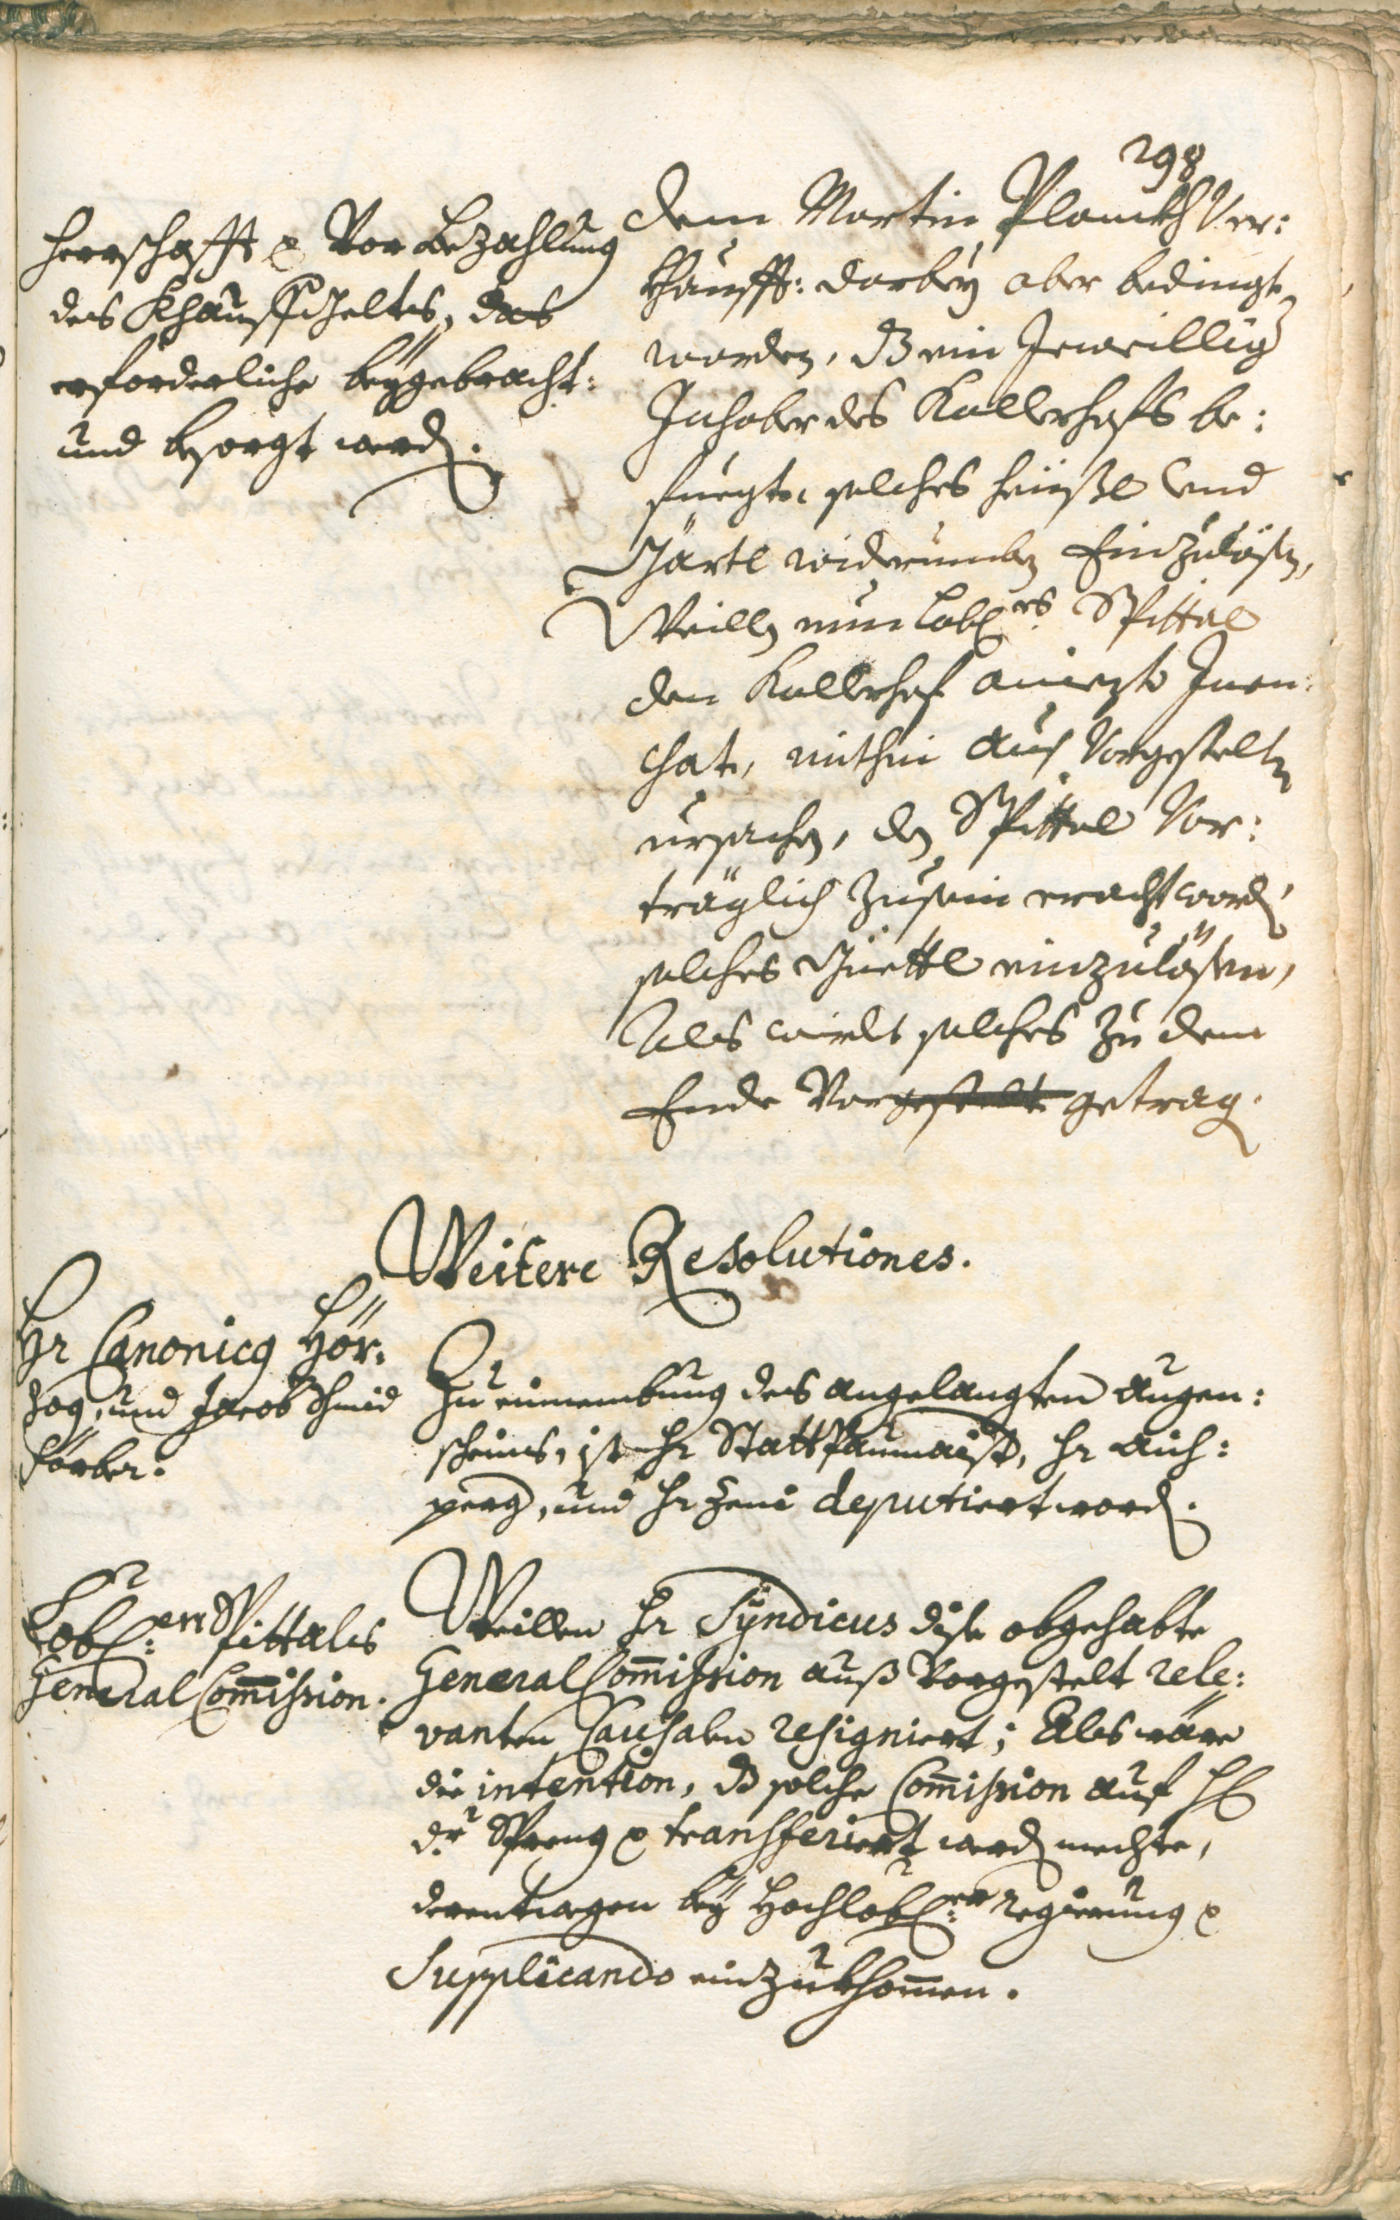 298
herrschafft & Vor Bezahlung
des Khauffschelts, das
erforderliche beygebracht:
und besorgt werd.
dem Martin Planckh Ver:
khaufft: darbey aber bedingt
worden, dß ein Jeweillig
Inhaber des Kallerhofs be:
fuegt, solches heüßl und
Gärtl widerumben Einzulösen,
Weillen nun Lobl.es Spittal
den Kallerhof aniezt Inen
hat, mithin auf Vorgestelte
ursachen, den Spittal Vor:
träglich zusein eracht word,
solches Güettl einzulösen,
Als wirdt solches zu dem
Ende Vorgestelt getrag.
Weitere Resolutiones.
Hr Canonicg Hör:
zog, und Jacob Schmid
förber.
Zu einnembung des angelangten augen:
scheins, ist Hr Stattpaumaist, Hr aich:
perg, und Hr Zeni deputiert word.
Lobl:en Spittals
General Commission.
Weillen Hr Syndicus dise obgehabte
General Commission auß Vorgestelt rele:
vanten Causalen resigniert; Als wäre
die intention, dß solche Commission auf H
dr Spreng & transferiert werd mechte,
derentwegen bey Hochlobl:er regierung &
Supplicando einzukhommen.